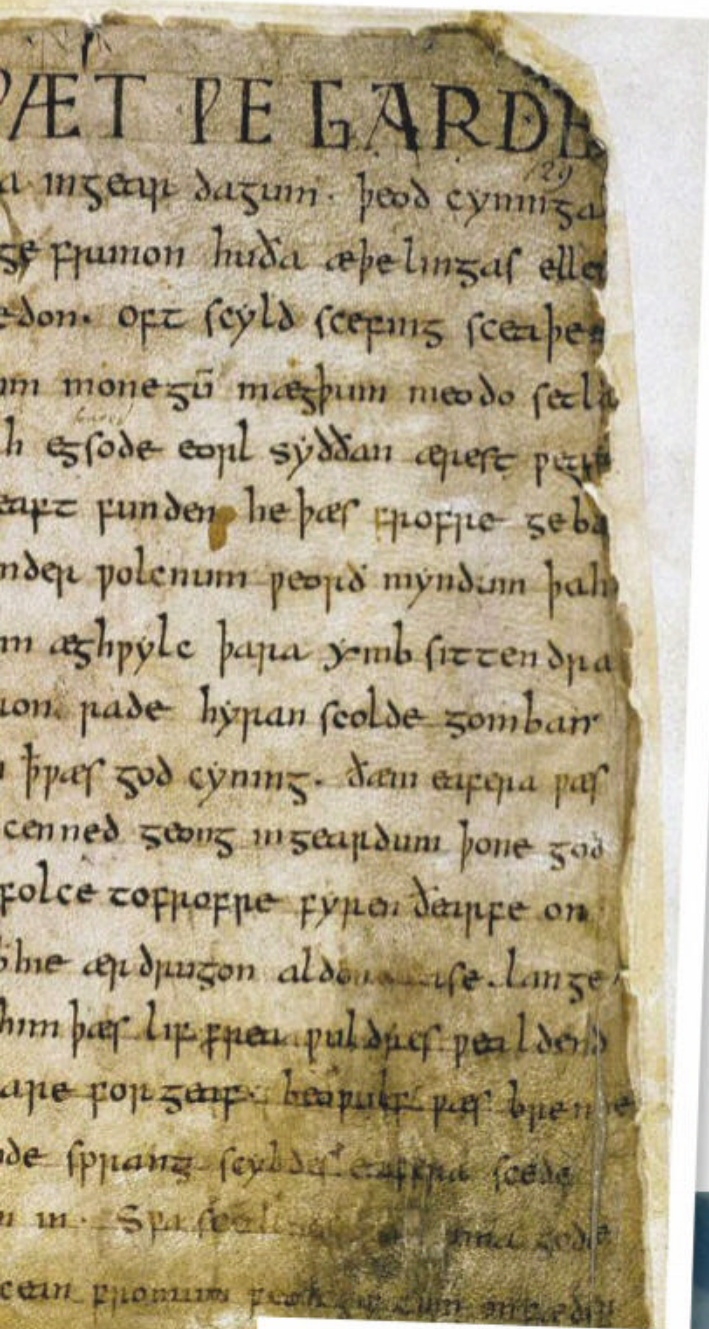 ǷÆT ǷE GARDE
129
a ingear dagum. þeod cyninga
ge frunon huða æþelingas elle
edon. oft scyld scefing sceaþe
um monegū mægþum meodo setla
h egsode eorl syððan ærest
eaft funden he þæs frofre geba
nder ƿolcnum ƿeorð myndum þah
m æghƿylc þara ymb sittendra
on rade hyran scolde gomban
n ꝥƿæs god cyning. ðæm eafera ƿæs
cenned geong ingeardum þone god
folce tofrofre fyren ðearfe on
ꝥhie ær drugon aldo ase. lange
him þæs lif frea ƿuldres ƿealdend
are for geaf. beoƿulf ƿæs breme
de sprang scyldes eafera scede
in. Sƿa sceal gode
cean fromum